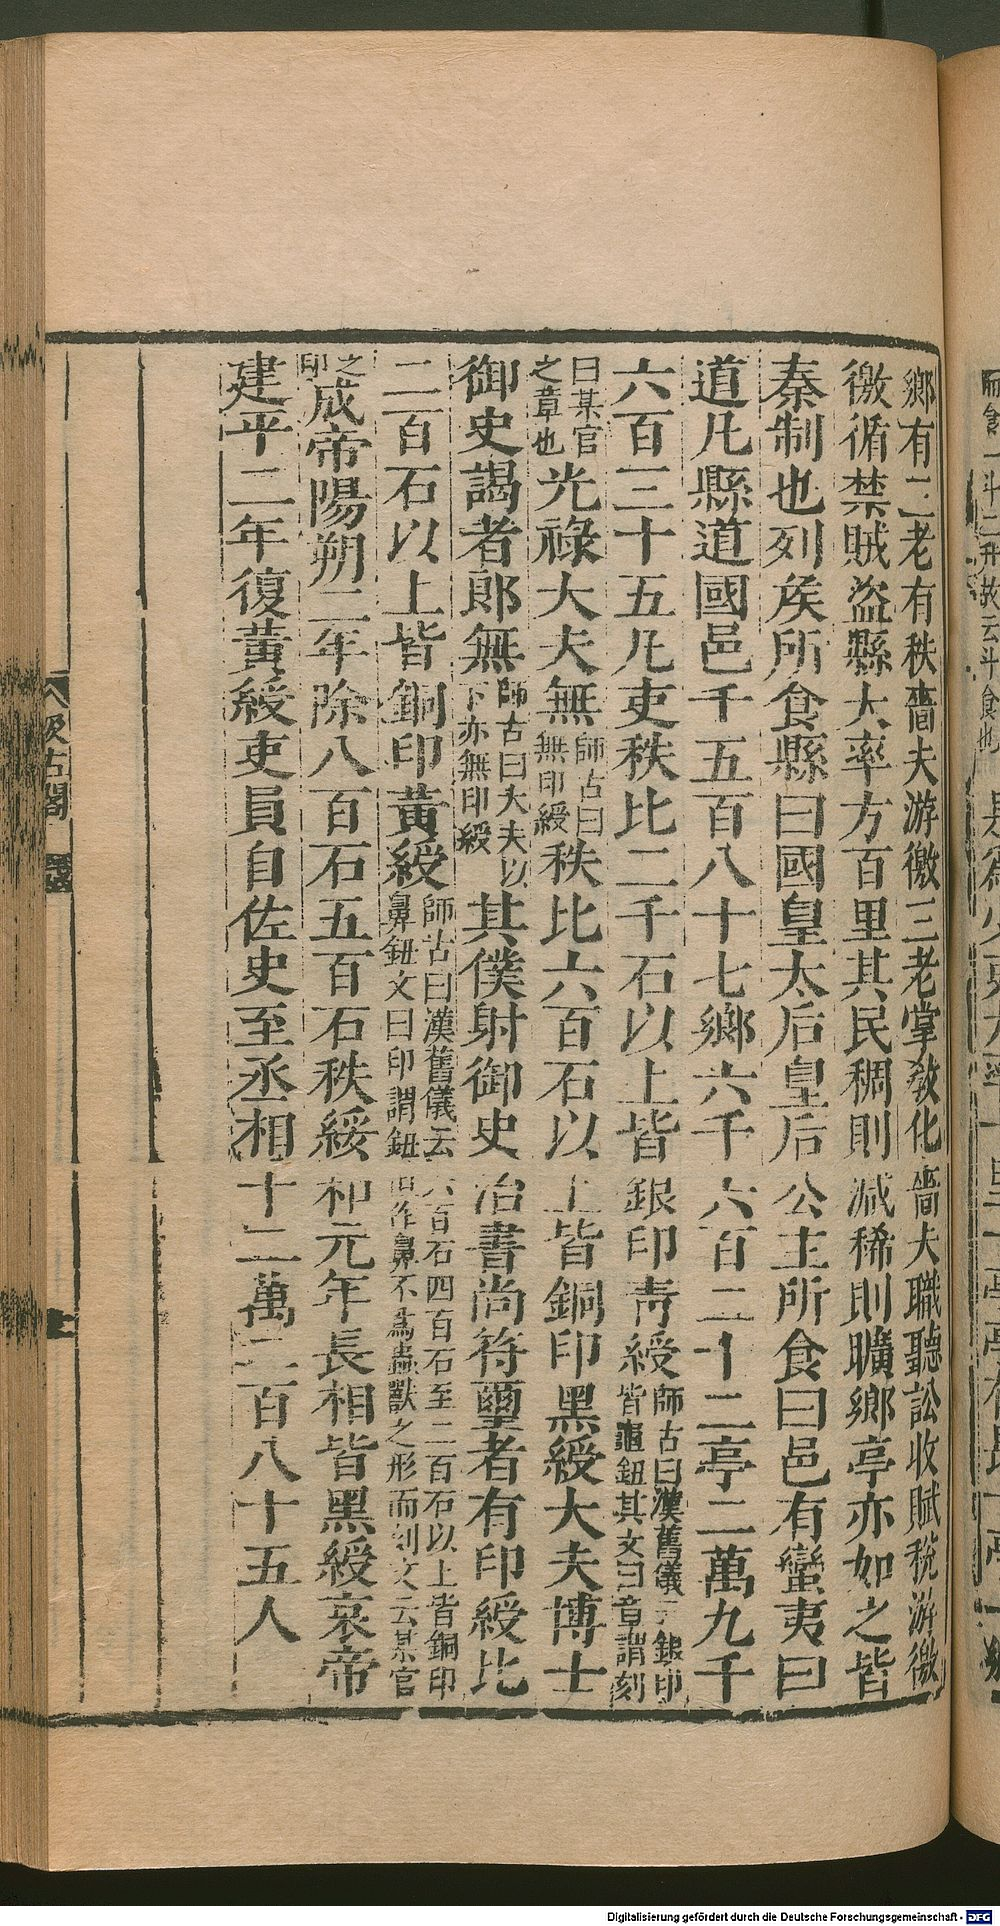 鄉有三老有秩嗇夫游徼三老掌敎化嗇夫職聽訟收賦稅游徼
徼循禁賊盜縣大率方百里其民稠則減稀則曠鄉亭亦如之皆
秦制也列矦所食縣曰國皇太后皇后公主所食曰邑有蠻夷曰
道凡縣道國邑千五百八十七鄉六千六百二十二亭二萬九千
六百三十五凡吏秩比二千石以上皆銀印靑綬師古曰漢舊儀云銀印皆龜鈕其文曰章謂刻
曰某官之章也光祿大夫無師古曰無印綬秩比六百石以上皆銅印黑綬大夫博士
御史謁者郎無師古曰大夫以下亦無印綬其僕射御史治書尚符璽者有印綬比
二百石以上皆銅印黃綬師古曰漢舊儀云六百石四百石至二百石以上皆銅印鼻鈕文曰印謂鈕但作鼻不爲蟲獸之形而刻文云某官
之印成帝陽朔二年除八百石五百石秩綏和元年長相皆黑綬哀帝
建平二年復黃綬吏員自佐史至丞相十二萬二百八十五人
汲古閣
Digitalisierung gefördert durch die Deutsche Forschungsgemeinschaft - DFG